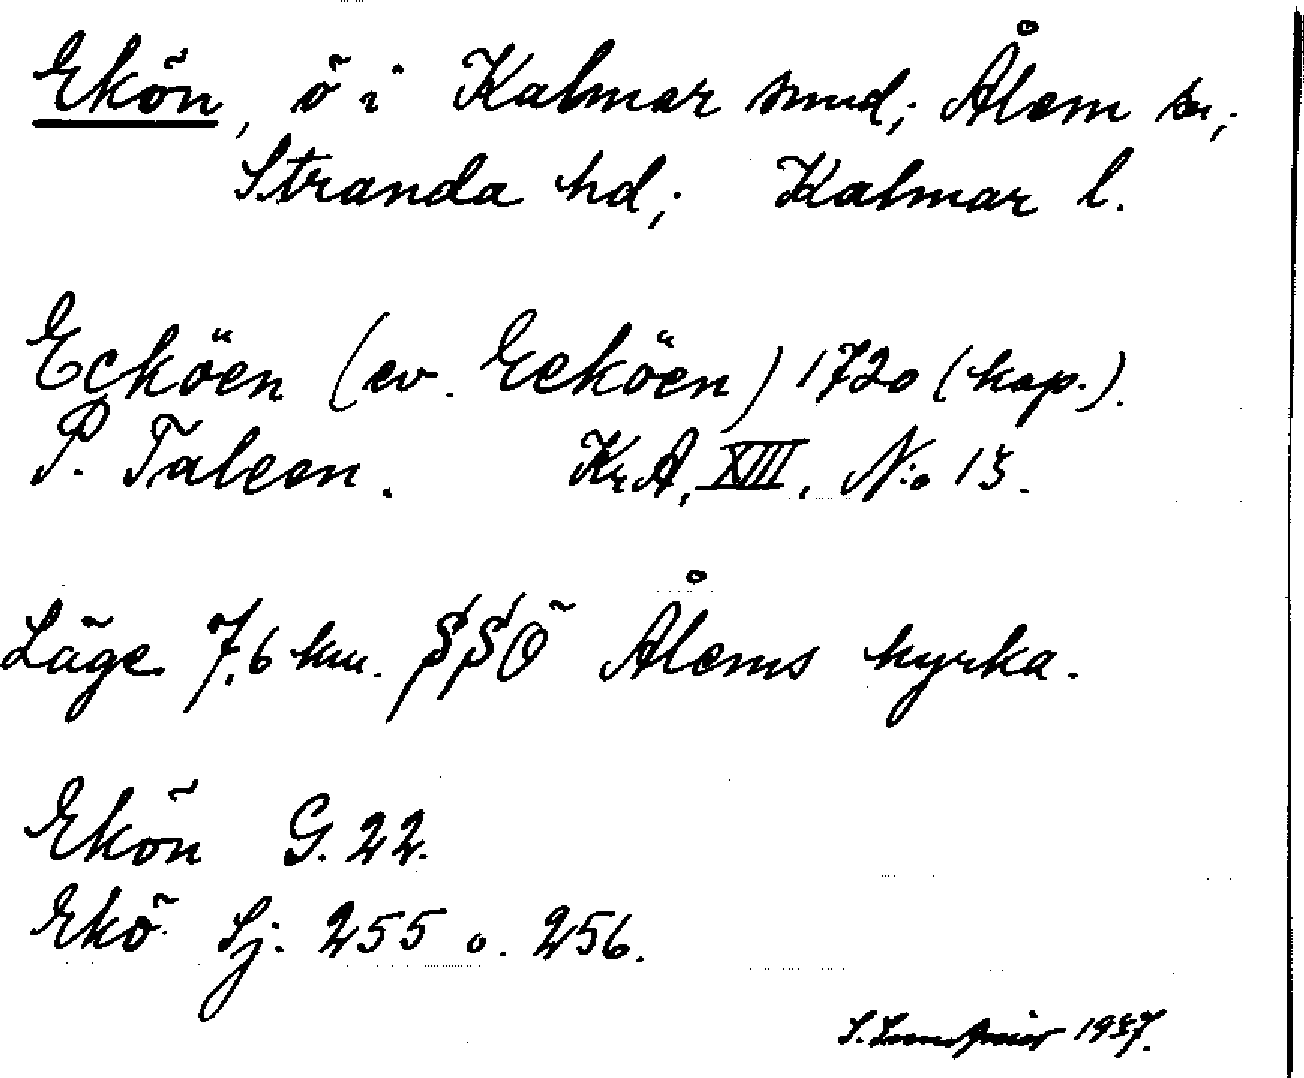 Ekön, ö i Kalmar sund; Ålem sn;
Stranda hd; Kalmar l.
Ecköen (ev. Eeköen) 1720 (kop.).
P. Taleen. Kr.A, XIII, N:o 15.
Läge 7,6 km. SSÖ Ålems kyrka.
Ekön G. 22.
Ekö Sj. 255 o. 256.
S. 1937.